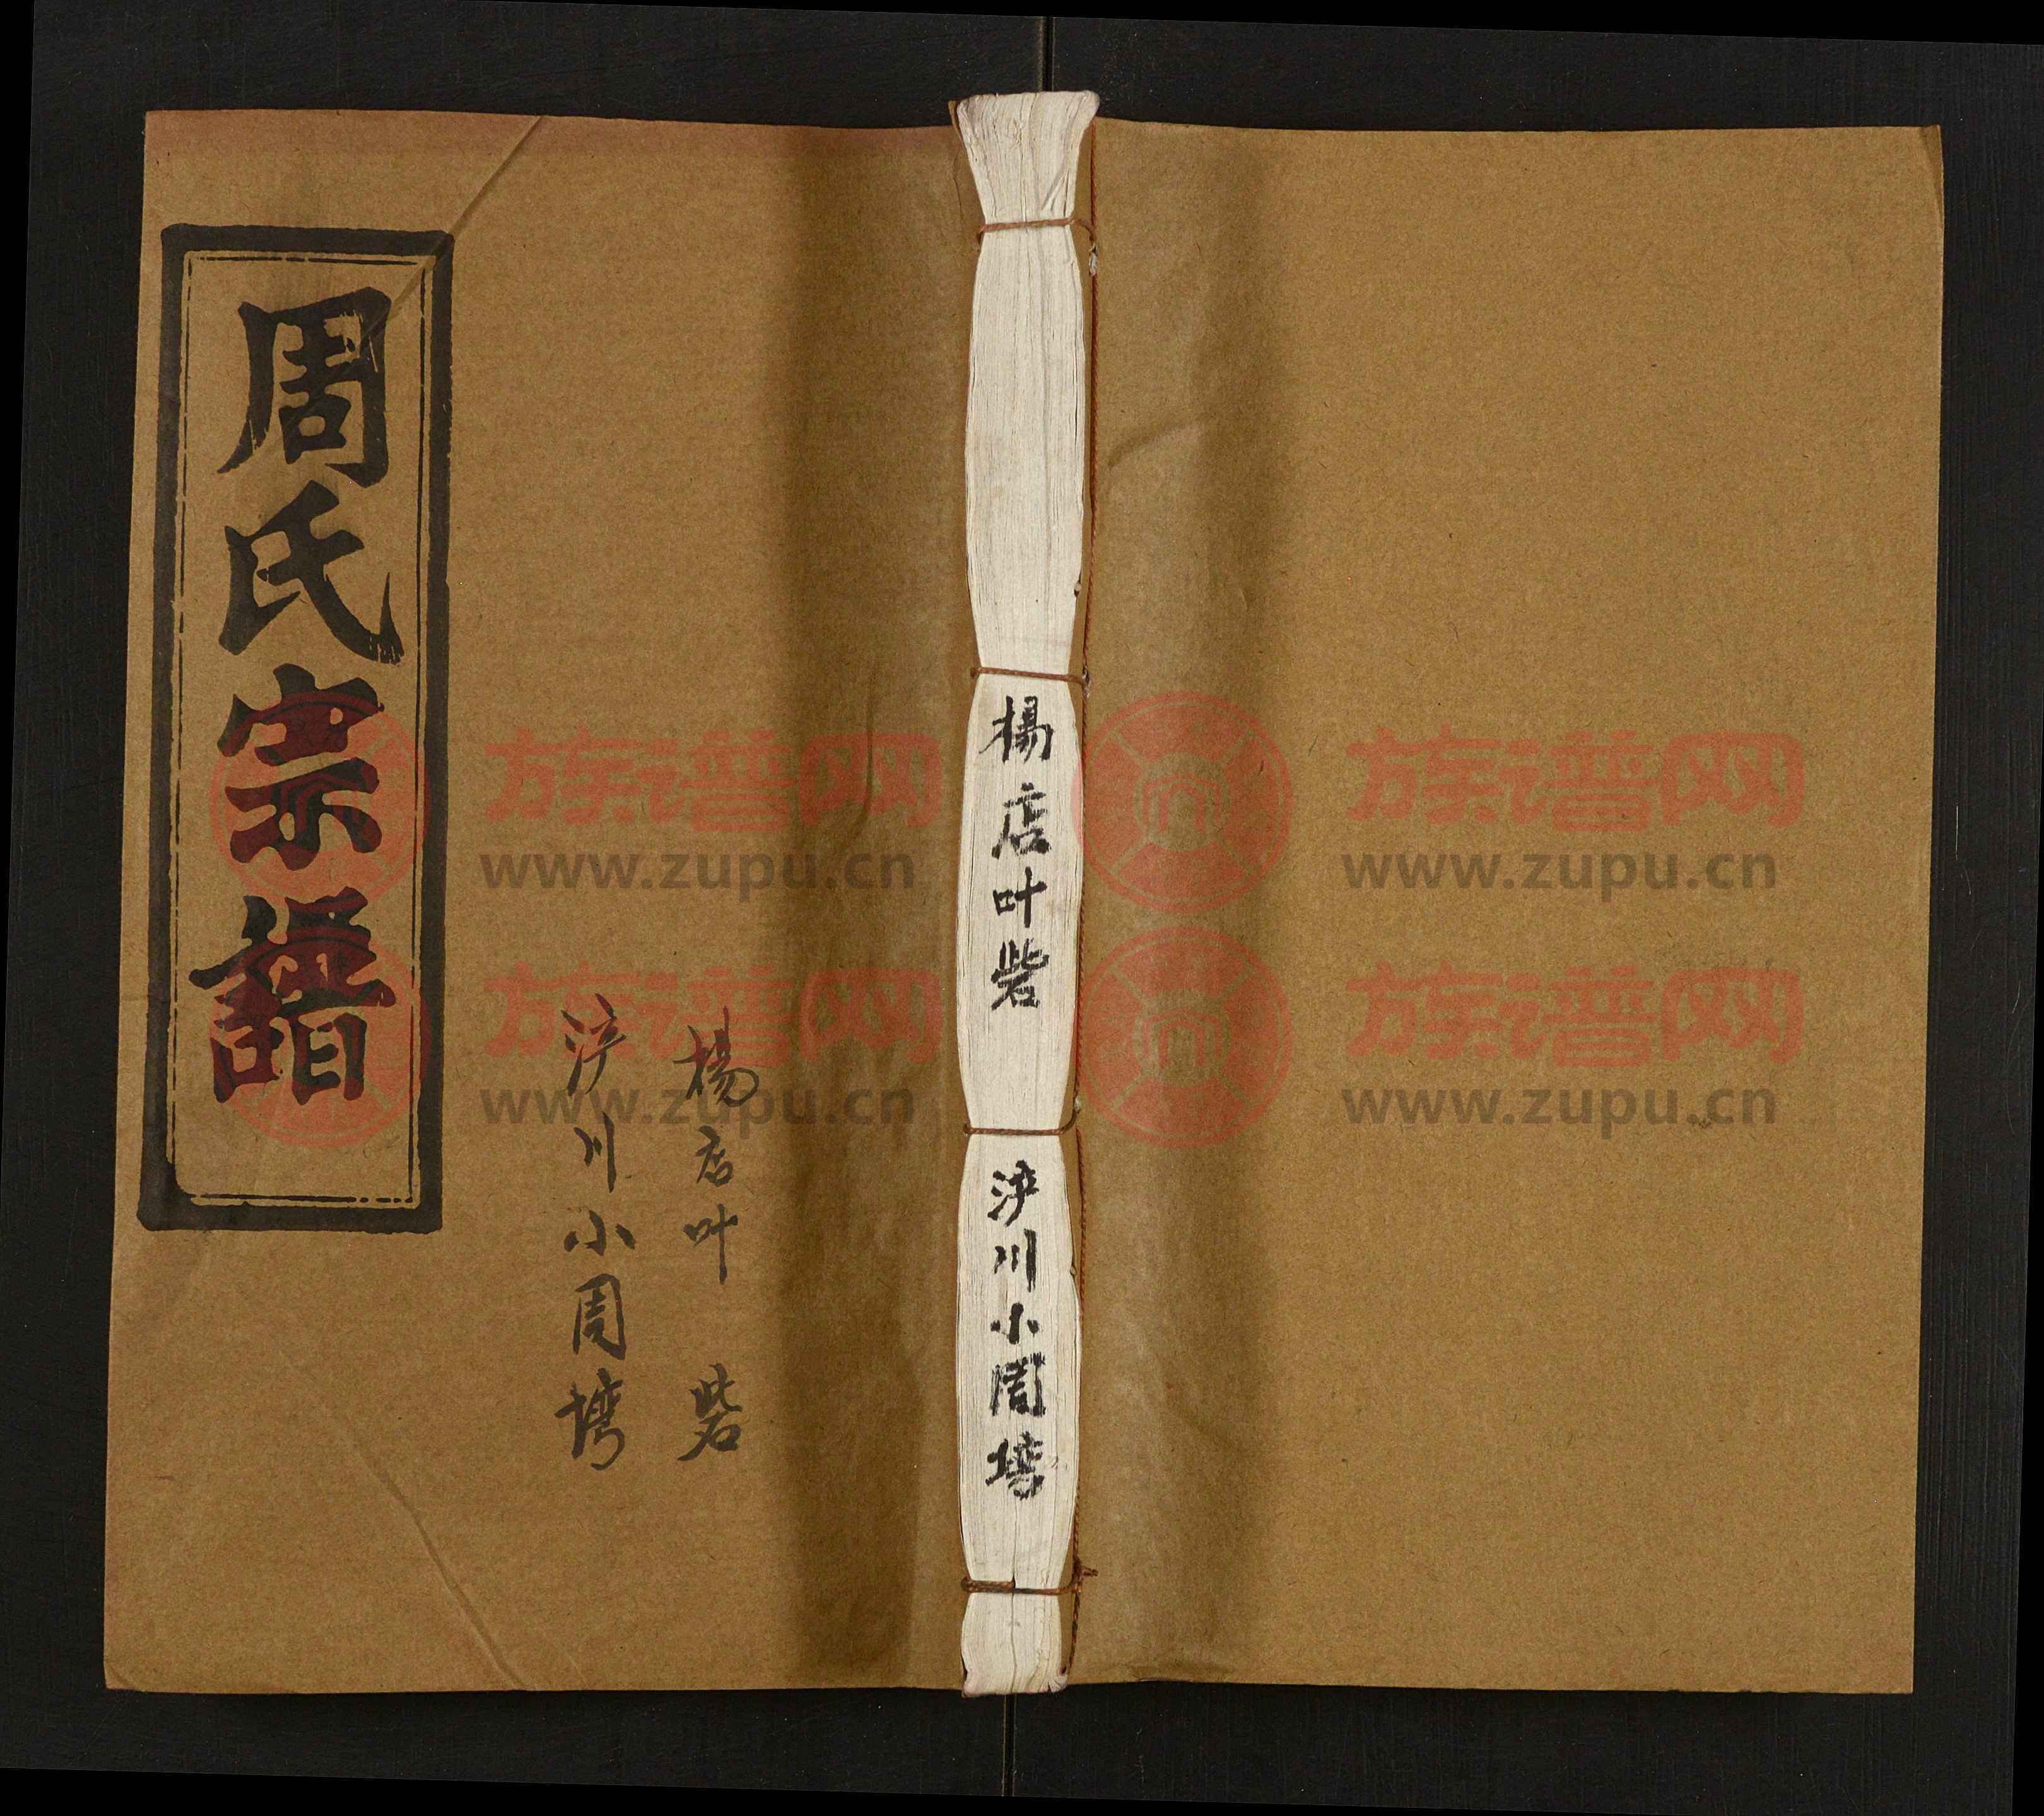 周氏宗譜
楊店叶砦
浐川小周塆
楊店叶砦
浐川小周塆
族谱网
www.zupu.cn
族谱网
www.zupu.cn
族谱网
www.zupu.cn
族谱网
www.zupu.cn